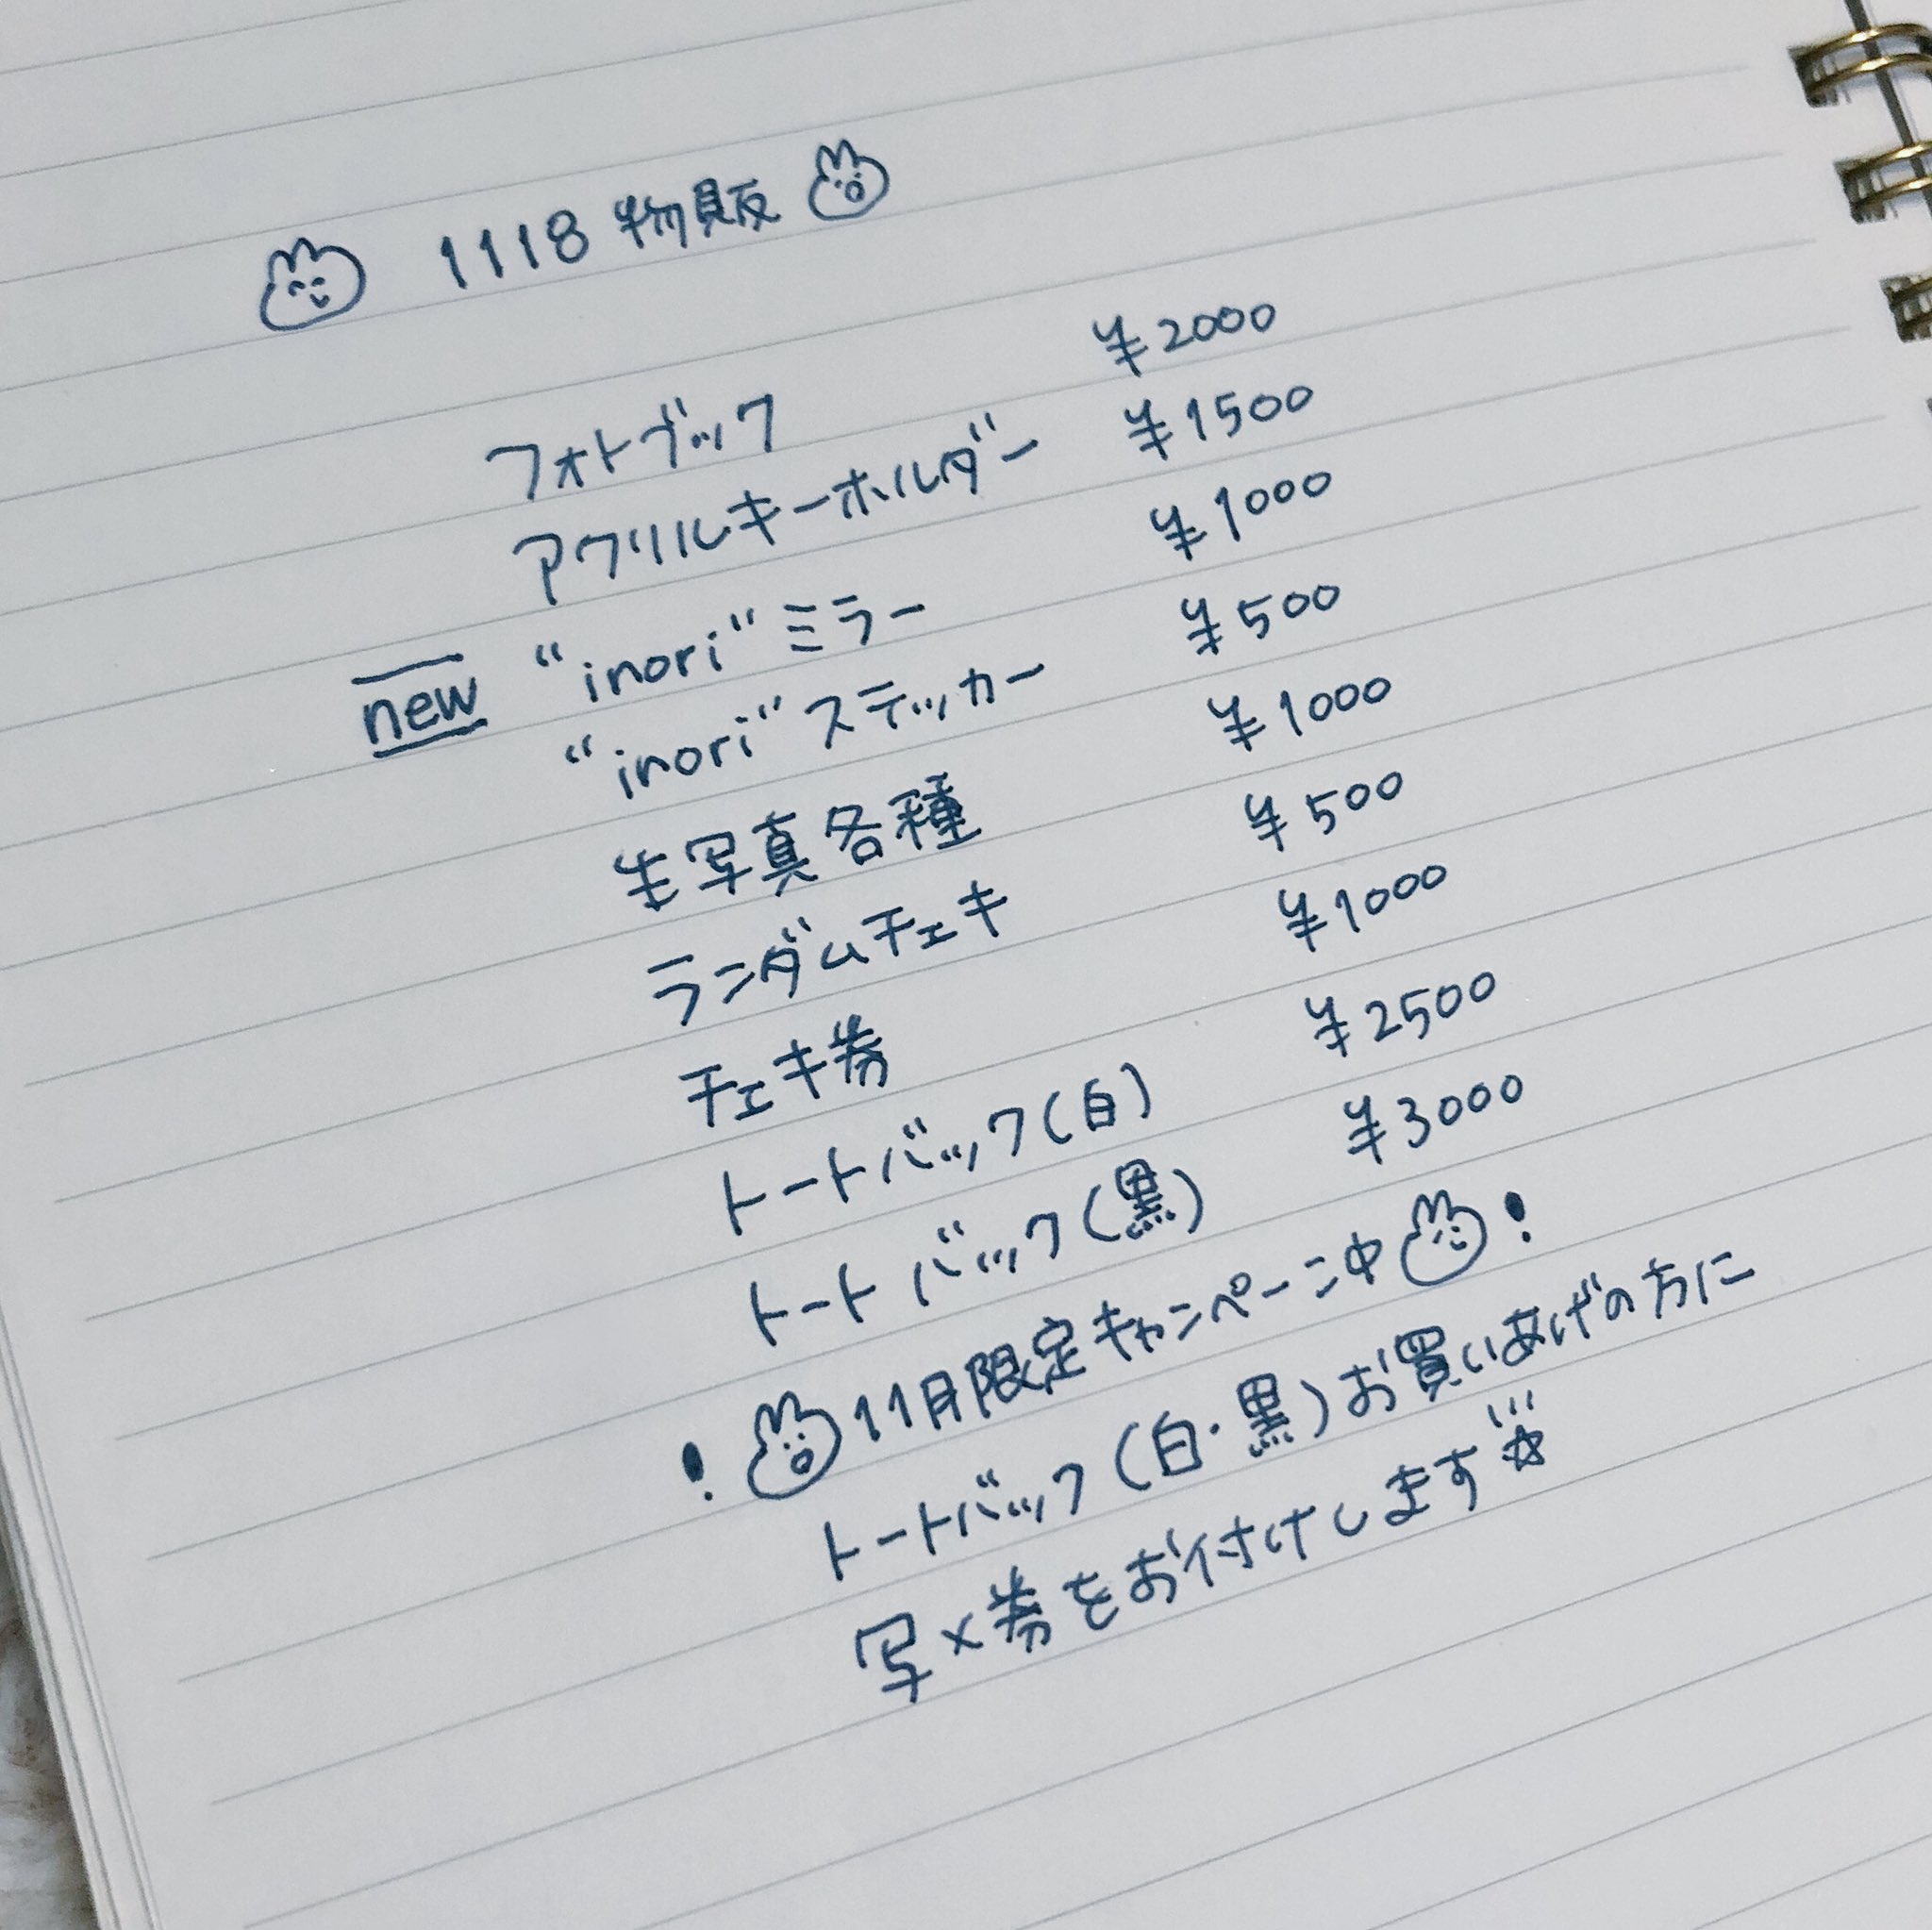 1118 物販
フォトブック ¥2000
アクリルキーホルダー ¥1500
new "inori"ミラー ¥1000
"inori"ステッカー ¥500
生写真各種 ¥1000
ランダムチェキ ¥500
チェキ券 ¥1000
トートバック(白) ¥2500
トートバック(黒) ¥3000
! 11月限定キャンペーン中 !
トートバック(白・黒)お買いあげの方に
写メ券をお付けします☆